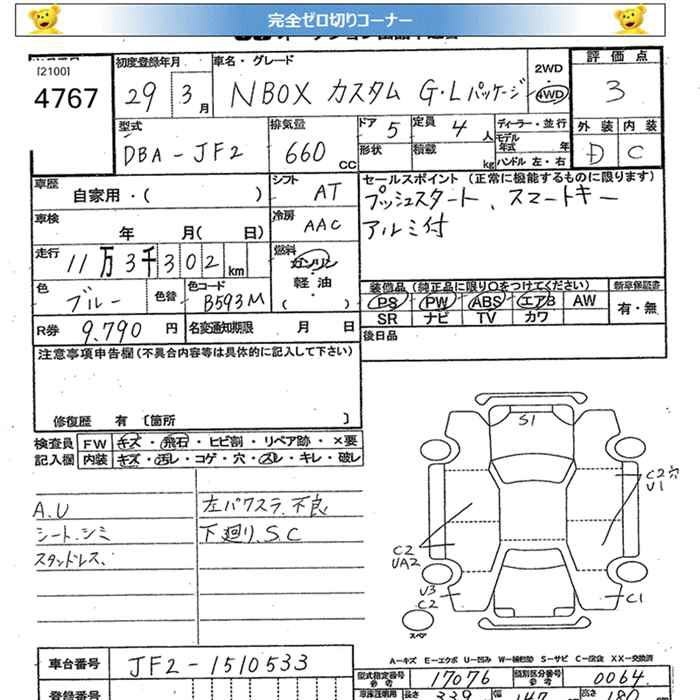 完全ゼロ切りコーナー
[2100]
4767
初度登録年月
29 3月
車名・グレード
NBOX カスタム G・Lパッケージ
2WD
4WD
評価点
3
型式
DBA-JF2
排気量
660 CC
ドア 5
定員 4 人
形状
積載 kg
ディーラー・並行
モデル年式 年
ハンドル 左・右
外装 内装
D C
車歴
自家用・( )
シフト AT
セールスポイント (正常に機能するものに限ります)
プッシュスタート、スマートキー
アルミ付
車検
年 月( 日)
冷房 AAC
走行
11万3千302km
燃料
ガソリン
・
軽油
( )
色
ブルー
色替
色コード
B593M
装備品 (純正品に限り○をつけてください)
新車保証書
PS PW ABS エアB AW
有・無
SR ナビ TV カワ
R券 9,790 円
名変通知期限 月 日
後日品
注意事項申告欄(不具合内容等は具体的に記入して下さい)
修復歴 有 〔箇所 〕
検査員
記入欄
FW キズ・飛石・ヒビ割・リペア跡・×要
内装 キズ・汚レ・コゲ・穴・スレ・キレ・破レ
A.U
シート、シミ
スタッドレス、
左パワスラ不良
下廻り.SC
S1
C2穴
U1
C2
UA2
U3
C2
C1
スペア
A-キズ E-エクボ U-凹み W-補修跡 S-サビ C-腐食 XX-交換済
車台番号 JF2-1510533
型式指定番号
参考
17076
類別区分番号
参考
0064
登録番号
長さ 339